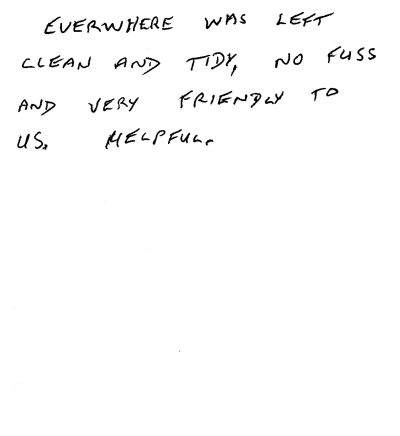 EVERWHERE WAS LEFT
CLEAN AND TIDY, NO FUSS
AND VERY FRIENDLY TO
US. HELPFUL.